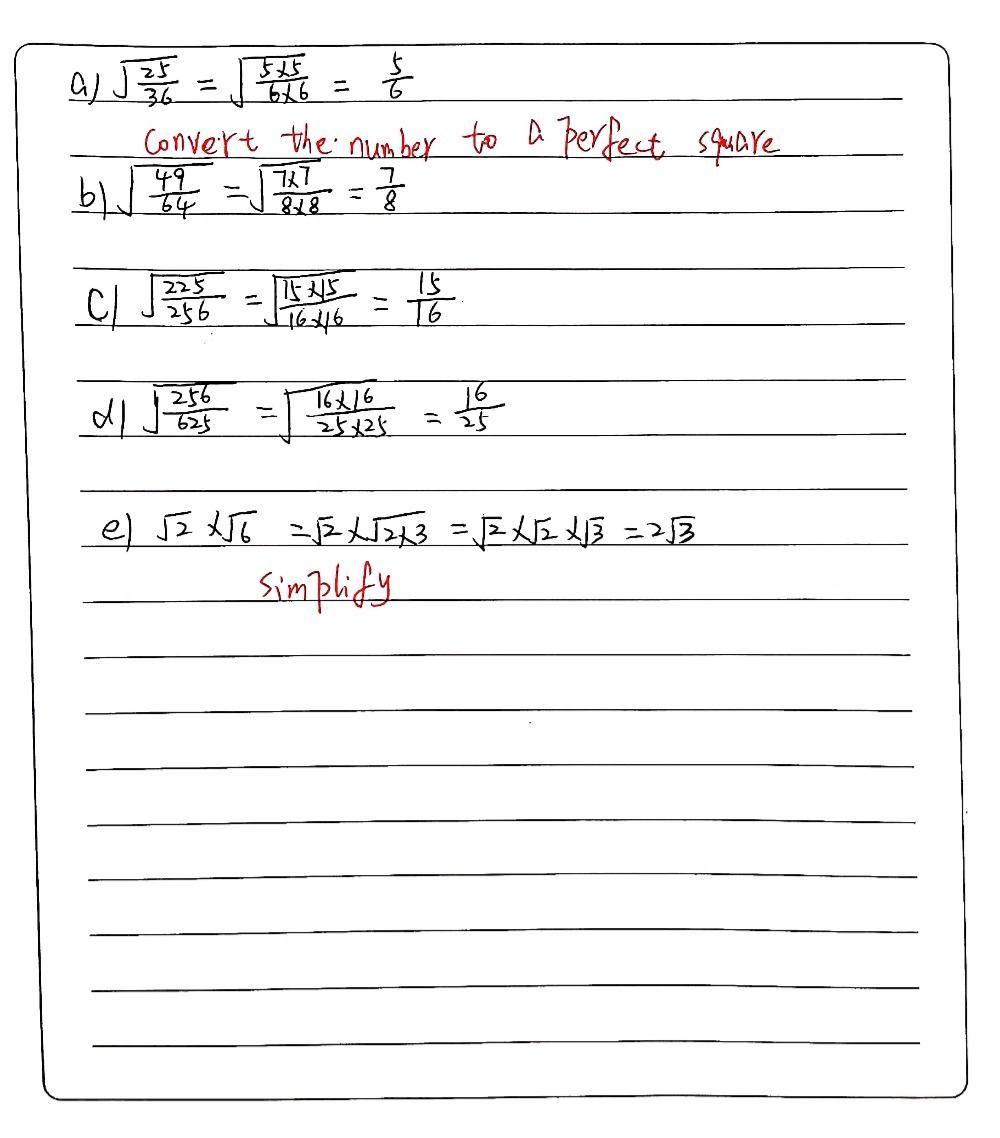 a) √(25/36) = √(5×5/6×6) = 5/6
convert the number to a perfect square
b) √(49/64) = √(7×7/8×8) = 7/8
c) √(225/256) = √(15×15/16×16) = 15/16
d) √(256/625) = √(16×16/25×25) = 16/25
e) √2 ×√6 =√2 ×√2×3 =√2 ×√2 ×√3 =2√3
simplify